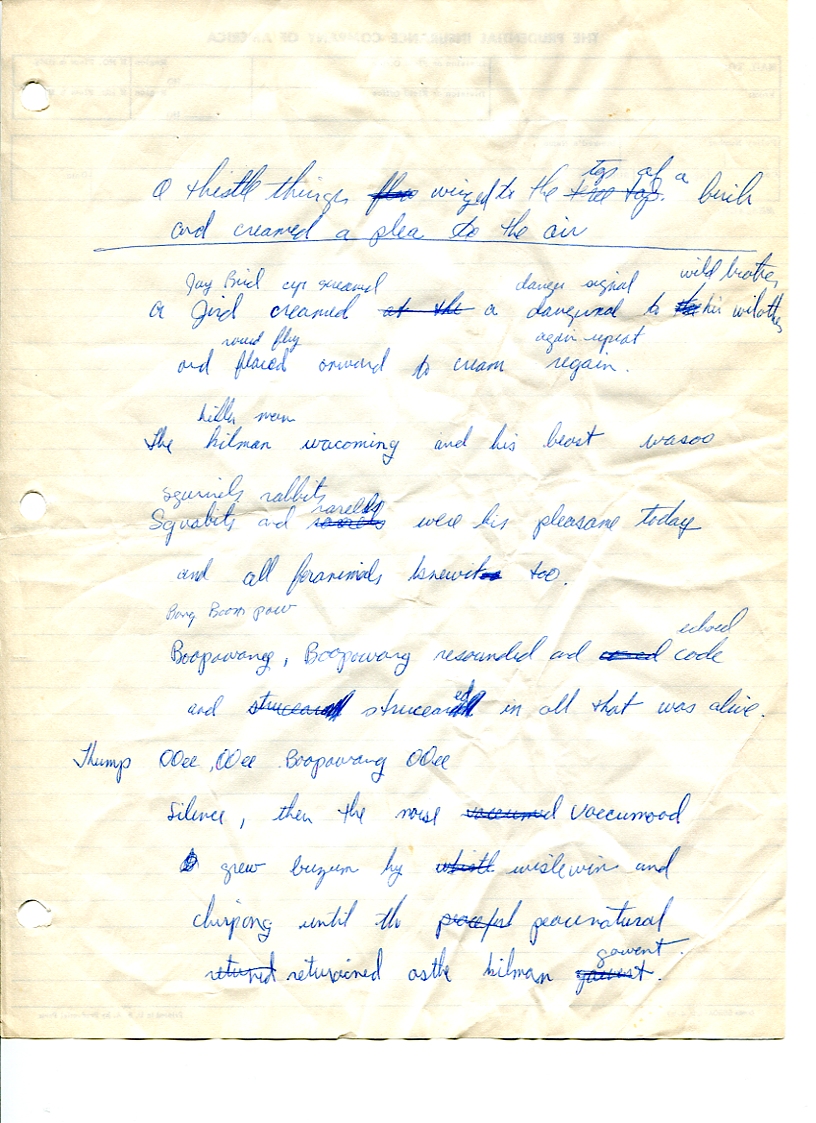 A thistle things flew winged to the tree top. top of a birch
and creamed a plea to the air
Jay Bird cry screamed danger signal wild brother
A Jird creamed at the a dangernal to the his wilother
round fly again repeat
and flaced onward to cream regain.
killer man
The kilman wacoming and his beast wasoo
squirrels rabbits
Squabits and rarells were his pleasane today
and all feranimals knewit too.
Bang Boom pow
echoed
Boopowang, Boopowang resounded and code
and struceared in all that was alive.
Thumps OOee, OOee Boopowang OOee
Silence, then the noise vaccumood
grew buzum by whistle wislewin and
chirpong until the peaceful peacenatural
returned returained asthe kilman gowent.